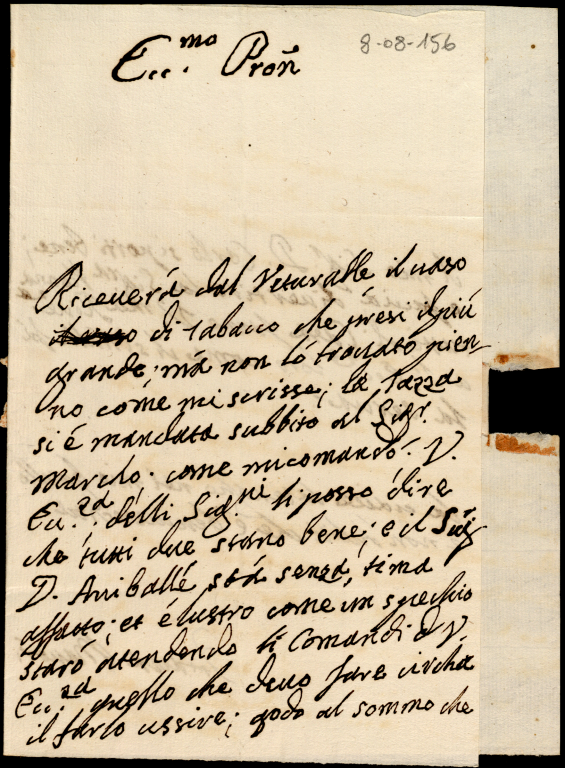 8-08-156
Ecc.mo Proñ
Riceuerá dal Veturalle il uaso
di tabacco che presi il piú
grande; má non ló trouato pien-
no come mi scrisse; la Tazza
si é mandata subbito al Sigr.
Marchó. come mi comandó. V.
Ecc.za délli Sig.ni li posso dire
che tutti due stano bene; e il Sig
D. Aniballé stá senza, tima
affatto; et é lustro come un specchio
staró atendendo li Comandi d V.
Ecc.za quello che deuo fare circha
il farlo ussire; godo al sommo che